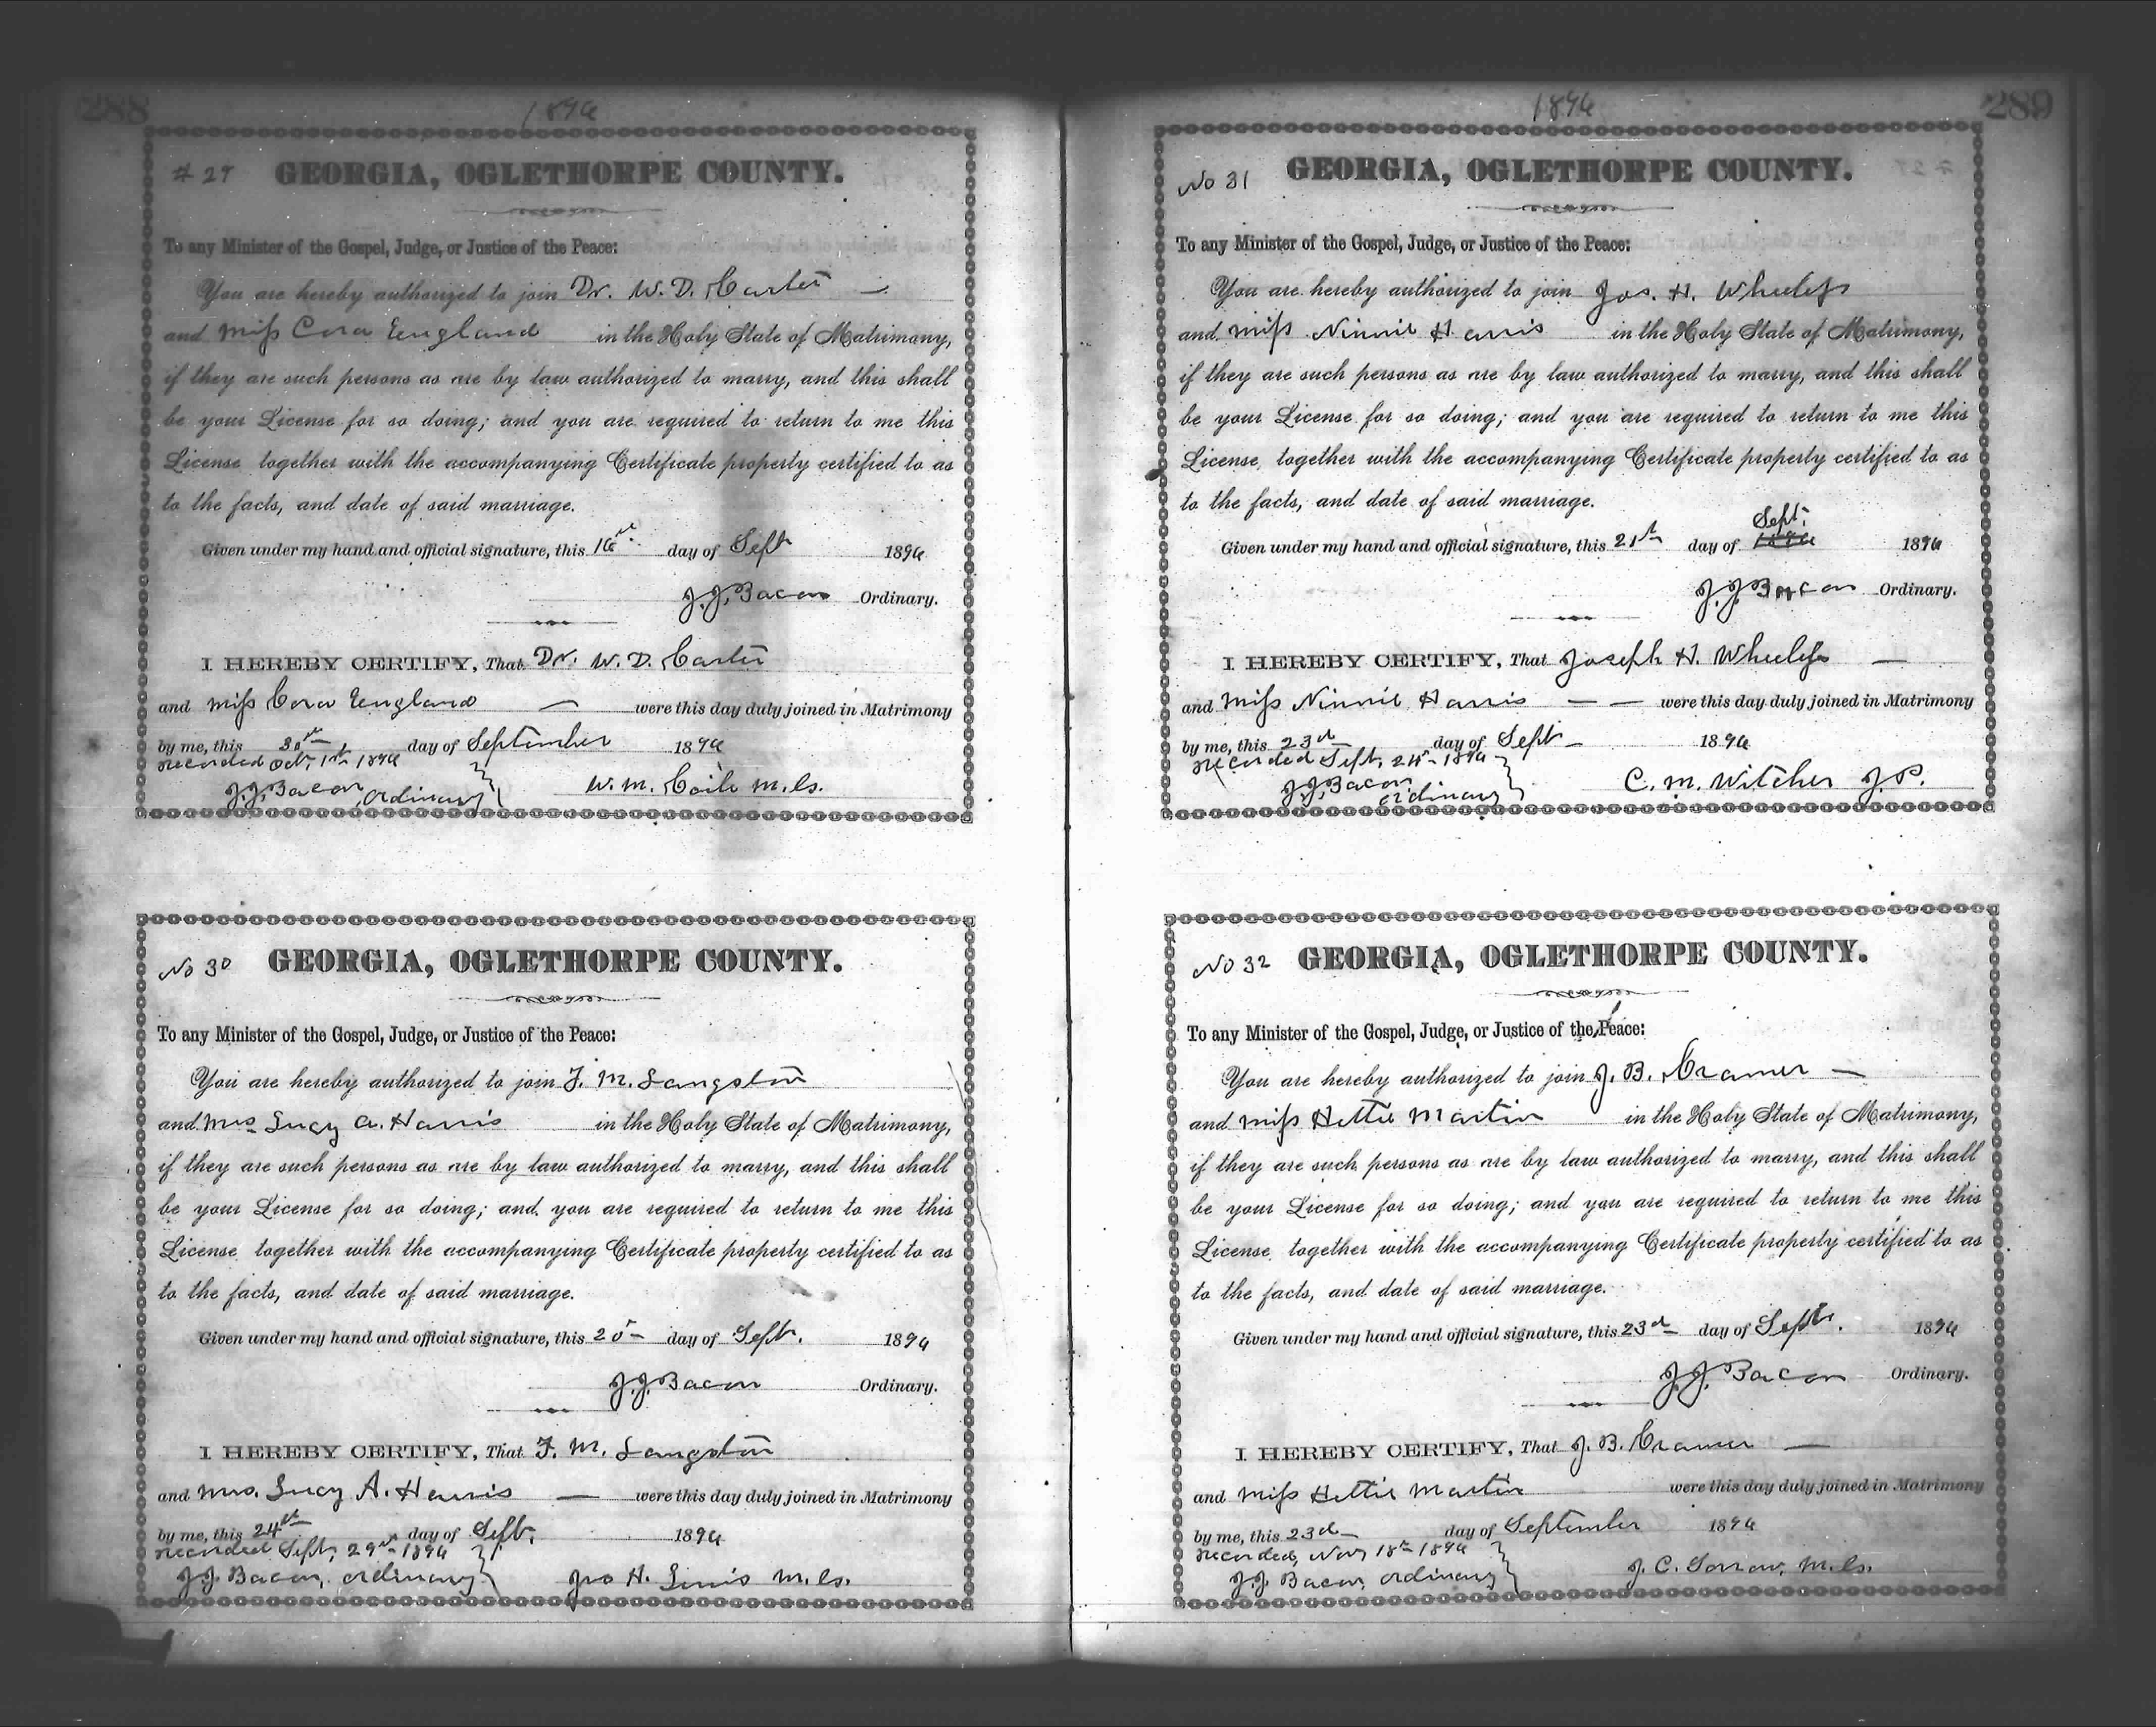 288
1896
# 29 GEORGIA, OGLETHORPE COUNTY.
To any Minister of the Gospel, Judge, or Justice of the Peace:
You are hereby authorized to join Dr. W. D. Carter
and Miss Cora England in the Holy State of Matrimony,
if they are such persons as are by law authorized to marry, and this shall
be your License for so doing; and you are required to return to me this
License, together with the accompanying Certificate property certified to as
to the facts, and date of said marriage.
Given under my hand and official signature, this 16th day of Sept 1896
J. J. Bacon Ordinary.
I HEREBY CERTIFY, That Dr. W. D. Carter
and Miss Cora England — were this day duly joined in Matrimony
by me, this 30th day of September 1896
recorded Oct, 1st 1896
J. J. Bacon, Ordinary W. M. Coile M.G.
No 30 GEORGIA, OGLETHORPE COUNTY.
To any Minister of the Gospel, Judge, or Justice of the Peace:
You are hereby authorized to join F. M. Langston
and Mrs Lucy A. Harris in the Holy State of Matrimony,
if they are such persons as are by law authorized to marry, and this shall
be your License for so doing; and you are required to return to me this
License, together with the accompanying Certificate property certified to as
to the facts, and date of said marriage.
Given under my hand and official signature, this day of Sept. 1896
J. J. Bacon Ordinary.
I HEREBY CERTIFY, That F. M. Langston
and Mrs. Lucy A. Harris — were this day duly joined in Matrimony
by me, this 24th day of Sept, 1896
recorded Sept, 29th 1896
J. J. Bacon, Ordinary Jno H. M.G.
289
1896
No 31 GEORGIA, OGLETHORPE COUNTY.
To any Minister of the Gospel, Judge, or Justice of the Peace:
You are hereby authorized to join Jos. H. Wheeless
and Miss Ninnie Harris in the Holy State of Matrimony,
if they are such persons as are by law authorized to marry, and this shall
be your License for so doing; and you are required to return to me this
License, together with the accompanying Certificate property certified to as
to the facts, and date of said marriage.
Sept.
Given under my hand and official signature, this 21st day of 1896 1896
J. J. Bacon Ordinary.
I HEREBY CERTIFY, That Joseph H. Wheeless —
and Miss Ninnie Harris — — were this day duly joined in Matrimony
by me, this 23d day of Sept 1896
recorded Sept, 1896
J. J. Bacon, Ordinary C. M. Witcher J. P.
No 32 GEORGIA, OGLETHORPE COUNTY.
To any Minister of the Gospel, Judge, or Justice of the Peace:
You are hereby authorized to join J. B. Cramer —
and Miss Hettie Martin in the Holy State of Matrimony,
if they are such persons as are by law authorized to marry, and this shall
be your License for so doing; and you are required to return to me this
License, together with the accompanying Certificate property certified to as
to the facts, and date of said marriage.
Given under my hand and official signature, this 23d day of Sept. 1896
J. J. Bacon Ordinary.
I HEREBY CERTIFY, That J. B. Cramer —
and Miss Hettie Martin were this day duly joined in Matrimony
by me, this 23d day of September 1896
recorded, Nov, 18th 1896
J. J. Bacon, Ordinary J. C. Sorrow, M.G.